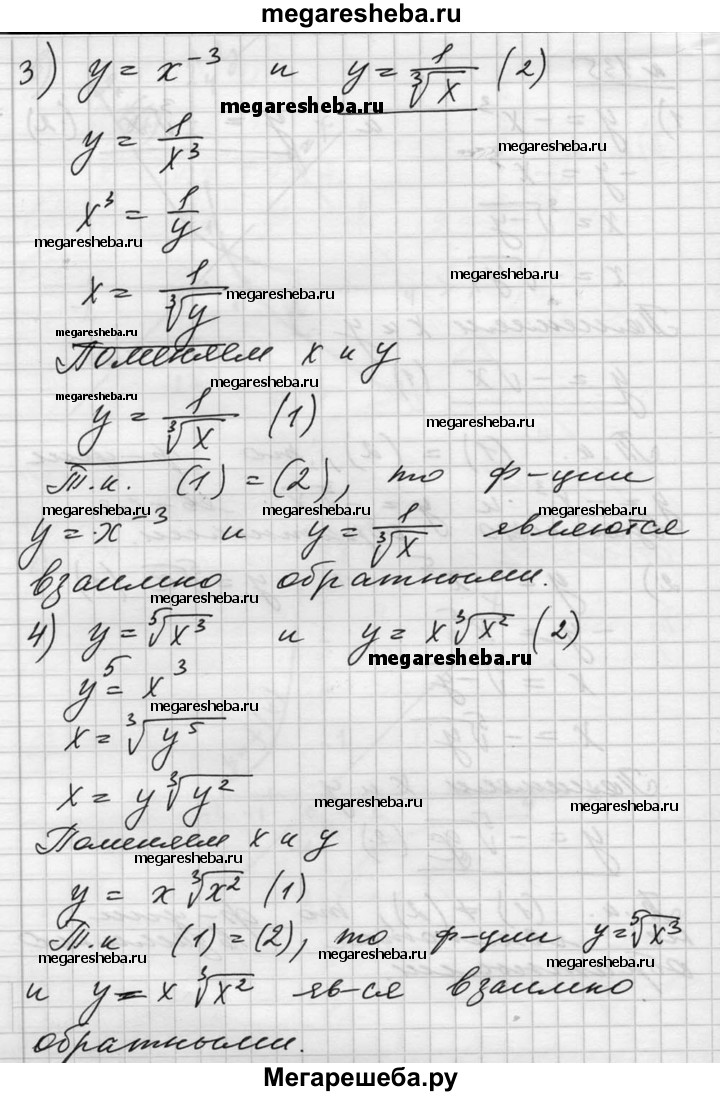 megaresheba.ru
3) y = x⁻³ и y = 1/∛x (2)
megaresheba.ru
y = 1/x³
megaresheba.ru
x³ = 1/y
megaresheba.ru
megaresheba.ru
x = 1/∛y
megaresheba.ru
megaresheba.ru
Поменяем x и y
megaresheba.ru
megaresheba.ru
y = 1/∛x (1)
megaresheba.ru
Т.к. (1) = (2), то ф-ции
megaresheba.ru megaresheba.ru megaresheba.ru
y = x⁻³ и y = 1/∛x являются
взаимно обратными.
megaresheba.ru
4) y = ⁵√x³ и y = x∛x² (2)
megaresheba.ru
y⁵ = x³
megaresheba.ru
x = ∛y⁵
x = y∛y²
megaresheba.ru megaresheba.ru
Поменяем x и y
megaresheba.ru
y = x∛x² (1)
Т.к (1) = (2), то ф-ции y = ⁵√x³
megaresheba.ru megaresheba.ru megaresheba.ru
и y = x∛x² яв-ся взаимно
обратными.
Мегарешеба.ру